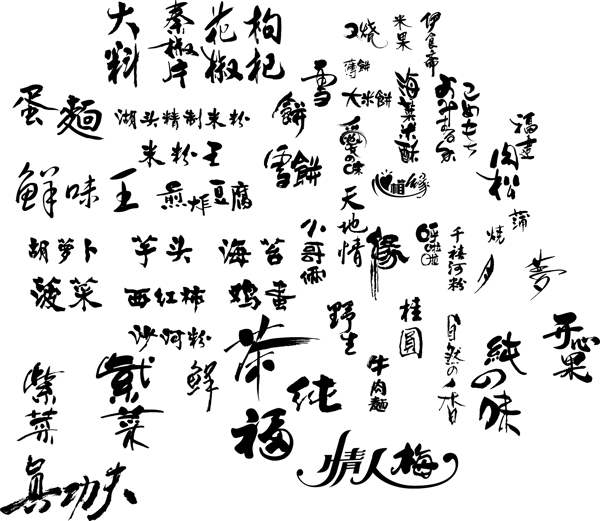 大料
桼椒片
花椒
枸杞
烧
米果
伊食斋
薄餅
雪
大米餅
海菜米酥
こめもち
蛋麵
湖头精制米粉
餅
米粉王
雪餅
愛の味
福建
肉松
鮮味王
煎炸豆腐
相缘
天地情
蒲烧
胡萝卜
芋头
海苔
小哥俩
緣
呼啦啦
千禧河粉
月
夢
菠菜
西红柿
鸡蛋
沙河粉
野生
桂圓
自然の香
純の味
开心果
茶
鲜
紫菜
紫菜
牛肉麵
纯
福
情人梅
真功夫